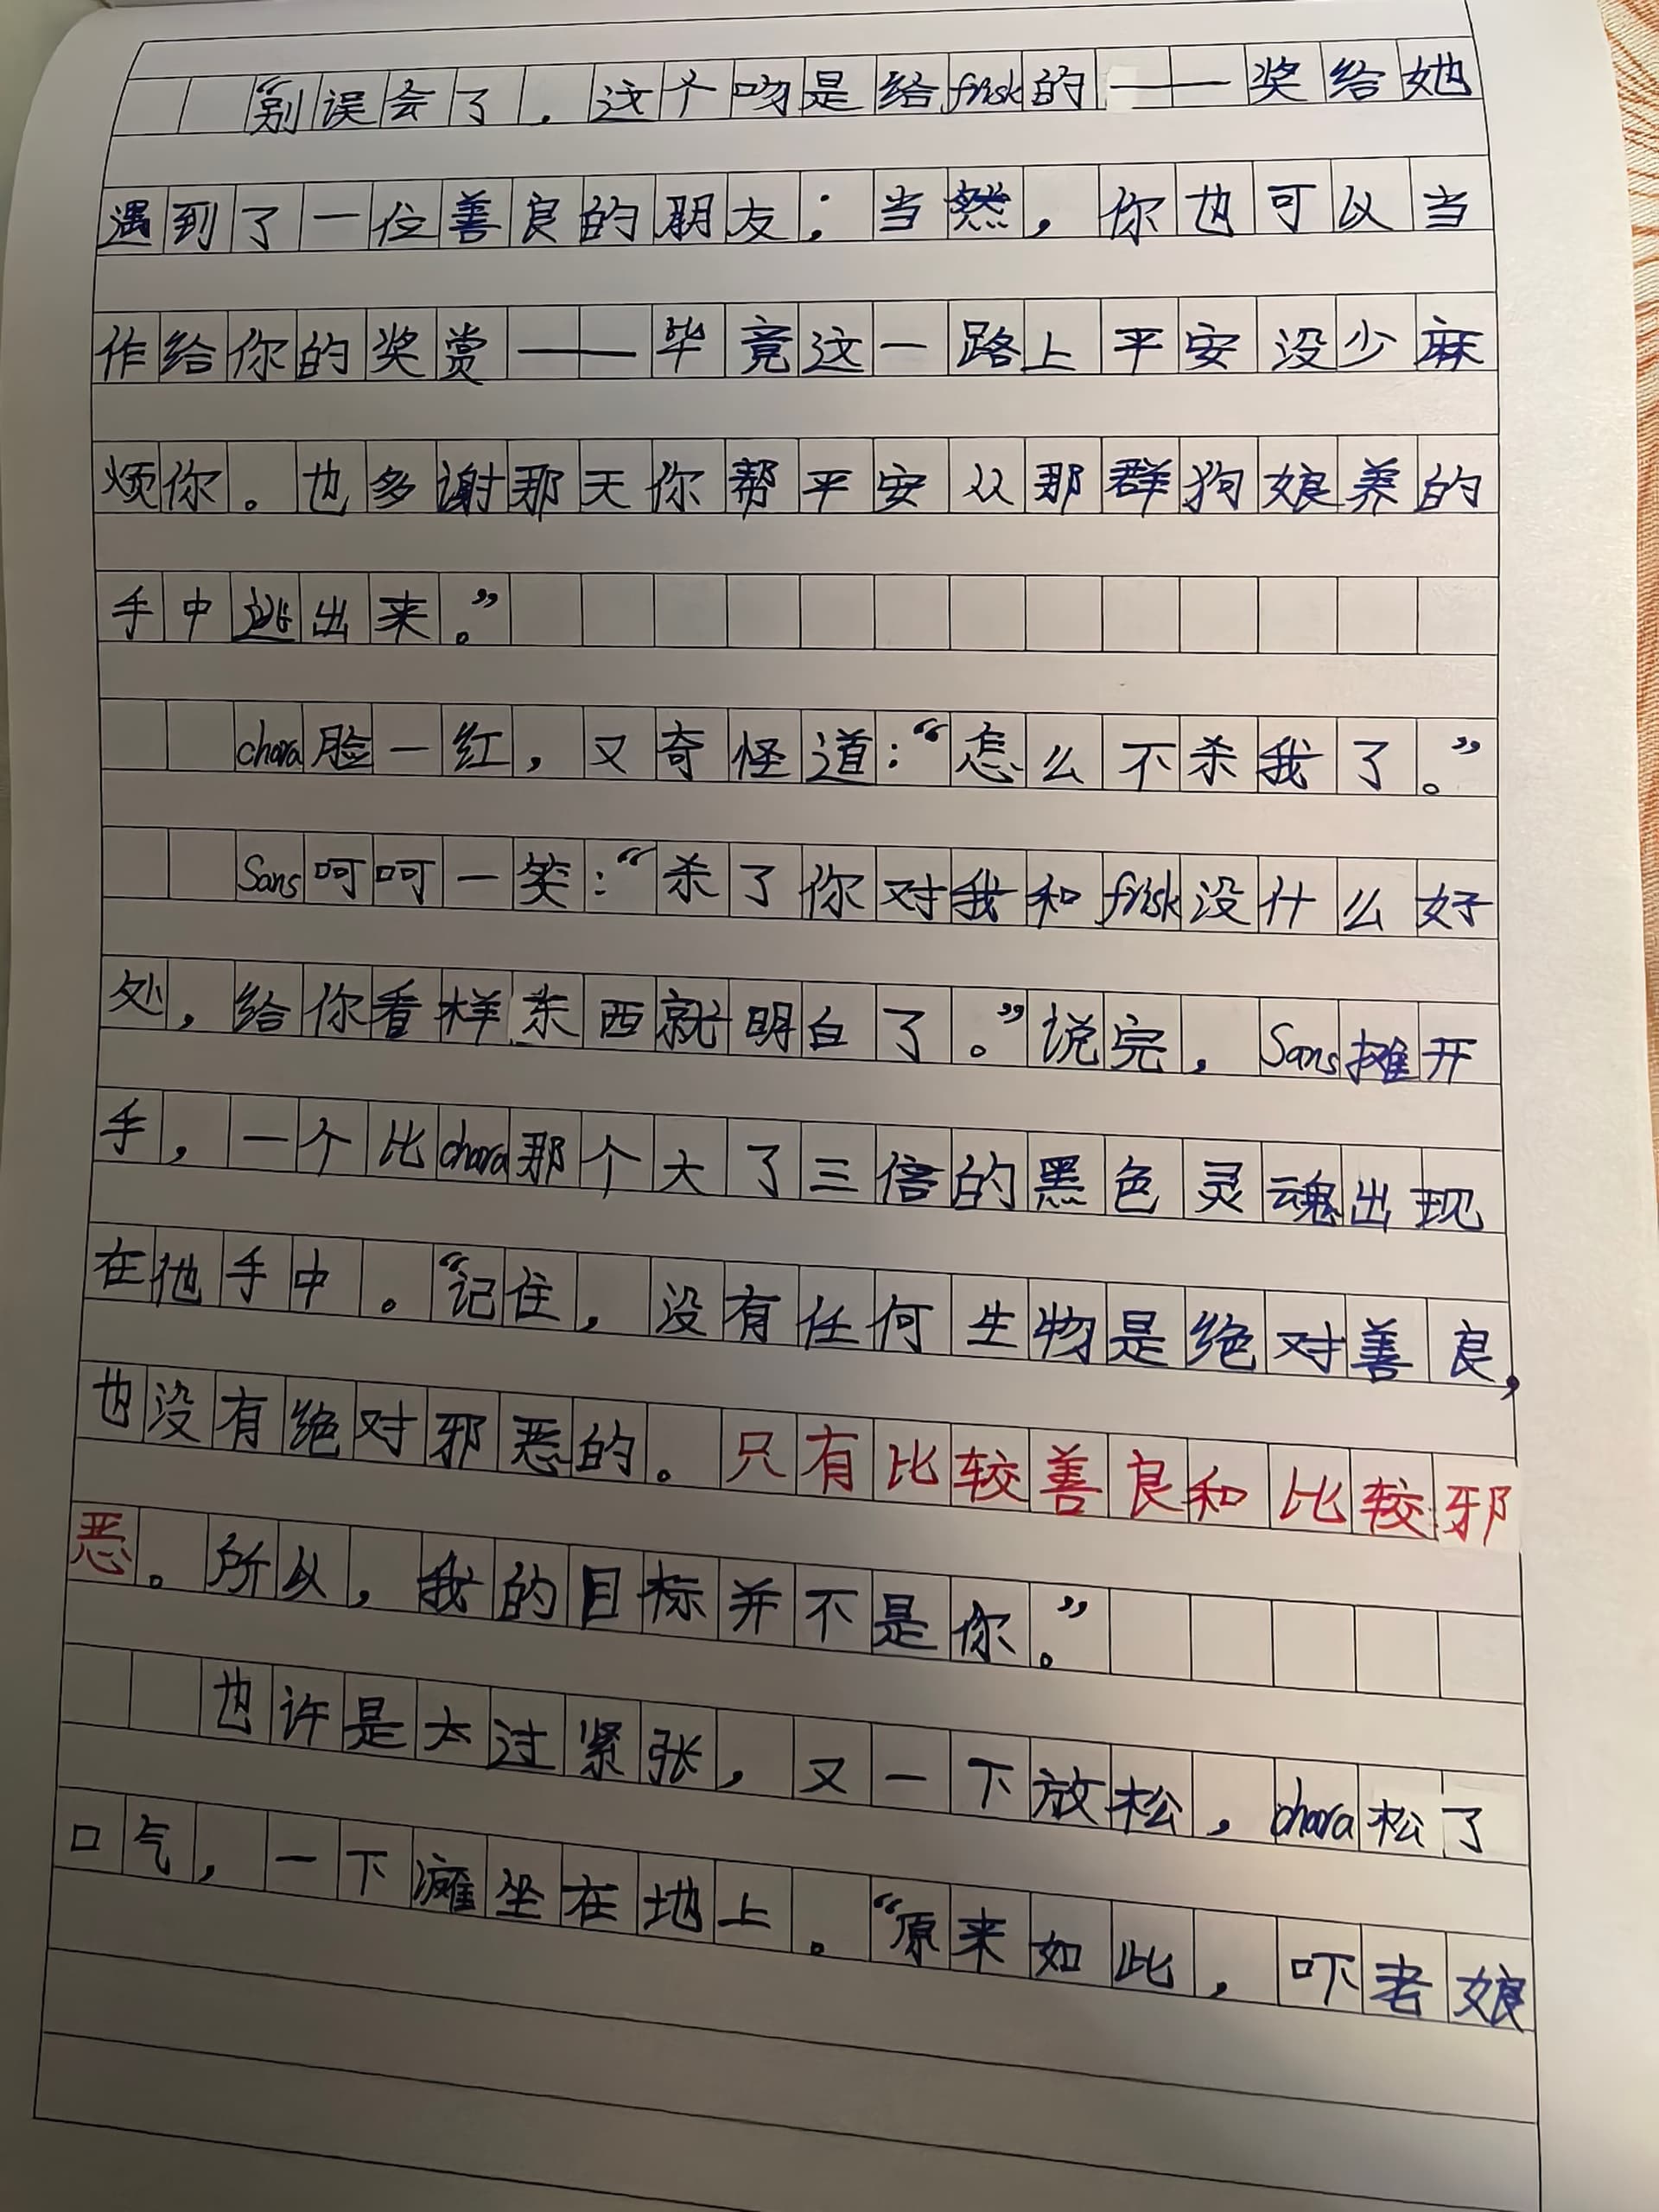 “别误会了，这个吻是给frisk的——奖给她
遇到了一位善良的朋友；当然，你也可以当
作给你的奖赏——毕竟这一路上平安没少麻
烦你。也多谢那天你帮平安从那群狗娘养的
手中逃出来。”
chara脸一红，又奇怪道：“怎么不杀我了。”
Sans呵呵一笑：“杀了你对我和frisk没什么好
处，给你看样东西就明白了。”说完，Sans摊开
手，一个比chara那个大了三倍的黑色灵魂出现
在他手中。“记住，没有任何生物是绝对善良，
也没有绝对邪恶的。只有比较善良和比较邪
恶。所以，我的目标并不是你。”
也许是太过紧张，又一下放松，chara松了
口气，一下瘫坐在地上。“原来如此，吓老娘